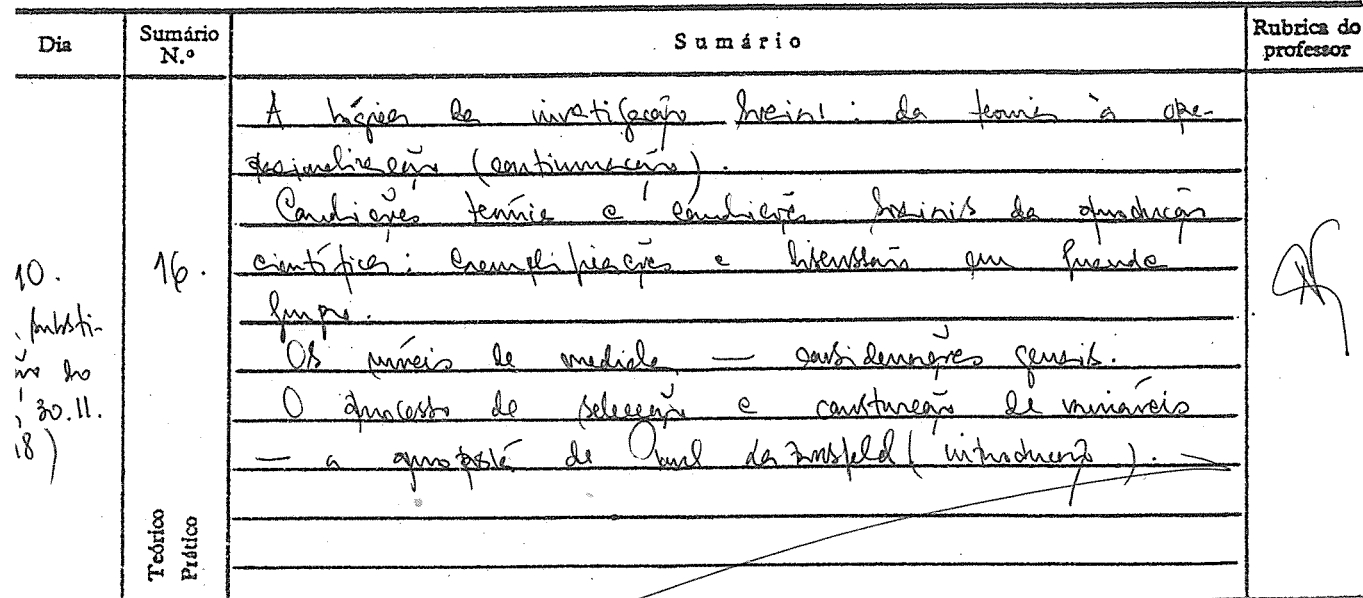 Dia
Sumário N.º
Sumário
Rubrica do professor
A lógica da investigação social: da teoria à ope-
racionalização (continuação).
Condições teóricas e condições sociais da produção
científica: exemplificações e discussão em grande
grupo.
Os níveis de medida — considerações gerais.
O processo de selecção e construção de variáveis
— a proposta de Paul Lazarsfeld (introdução).
10.
16.
30.11.
18)
Teórico
Prático